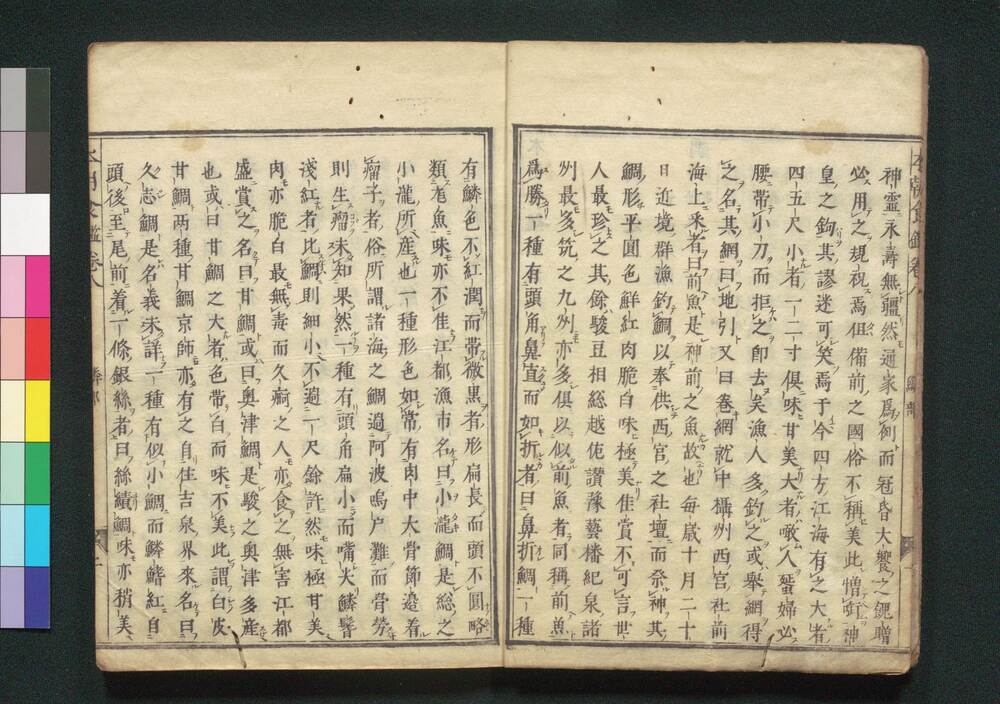 神靈永壽無疆然通家爲例而冠昏大饗之餽贈
必用之規祝焉但備前之國俗不稱美此憎魟神
皇之鉤其謬迷可笑焉于今四方江海有之大者
四五尺小者一二寸俱味甘美大者噉人蜑婦必
腰帶小刀而拒之即去矣漁人多釣之或舉網得
之名其網曰地引又曰卷網就中攝州西宮社前
海上采者曰前魚是神前之魚故也每歲十月二十
日近境群漁釣鯛以奉供西宮之社壇而祭神其
鯛形平圓色鮮紅肉脆白味極美佳賞不可言世
人最珍之其餘駿豆相総越佐讚豫藝播紀泉諸
州最多筑之九州亦多俱以似前魚者同稱前魚
爲勝一種有頭角鼻直而如折者曰鼻折鯛一種
有鱗色不紅潤而帶微黒者形扁長而頭不圓略
類尨魚味亦不佳江都漁市名曰小龍鯛是総之
小龍所産也一種形色如常有肉中大骨節邊着
瘤子者俗所謂諸海之鯛過阿波鳴戸灘而骨勞
則生瘤未知果然一種有頭角扁小而嘴尖鱗鬐
淺紅者比鯛則細小不過二尺餘許然味極甘美
肉亦脆白最無毒而久痾之人亦食之無害江都
盛賞之名曰甘鯛或曰奥津鯛是駿之奥津多産
也或曰甘鯛之大者色帶白而味不美此謂白皮
甘鯛两種甘鯛京師亦有之自住吉泉界來名曰
久志鯛是名義未詳一種有似小鯛而鱗鰭紅自
頭後至尾前着一條銀絲者曰絲績鯛味亦稍美